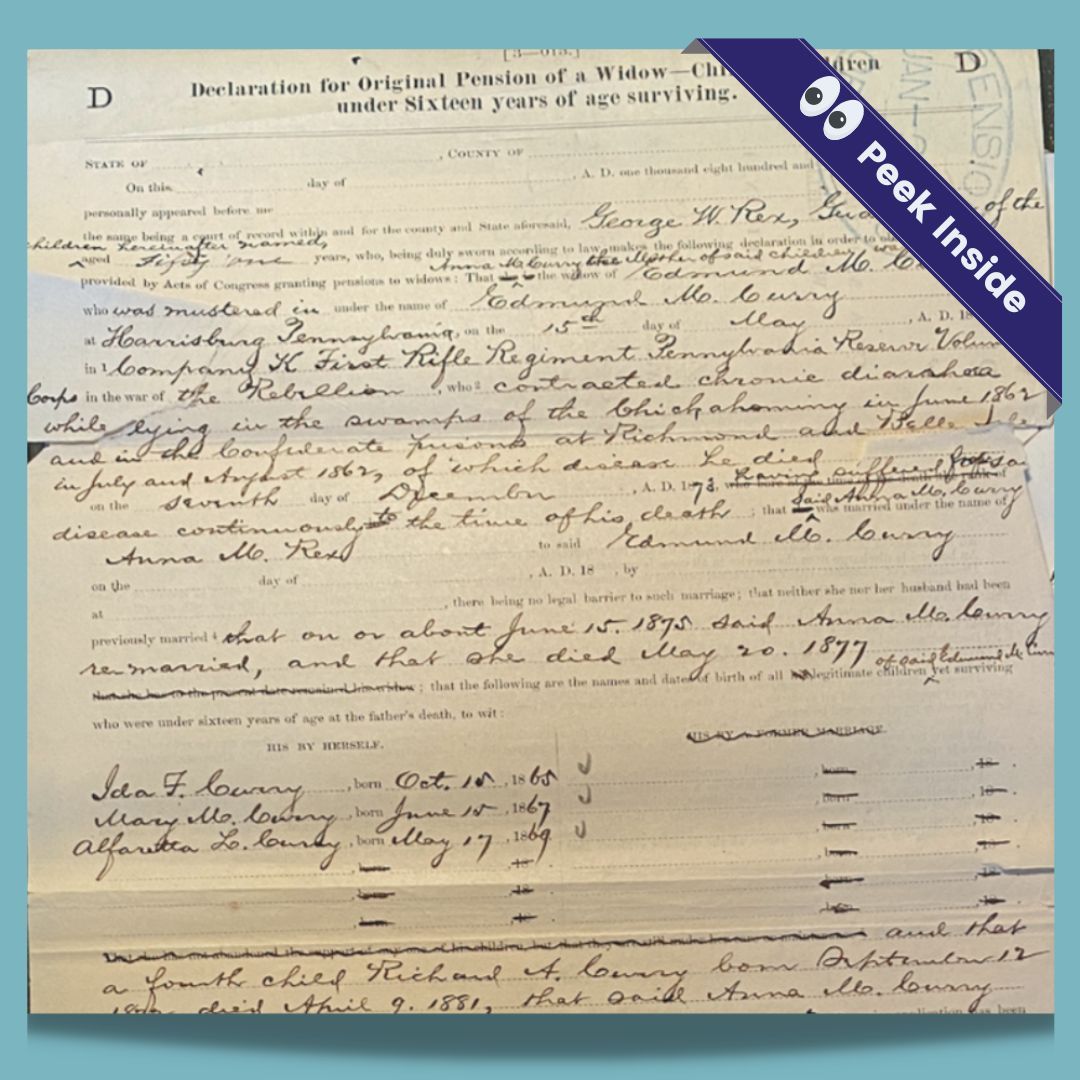 [3—015.]
D
Declaration for Original Pension of a Widow—Chi
dren
D
under Sixteen years of age surviving.
PENSIO
JAN
👀 Peek Inside
STATE OF , COUNTY OF
On this day of , A. D. one thousand eight hundred and
personally appeared before me
the same being a court of record within and for the county and State aforesaid, George W. Rex, of the
children hereinafter named,
aged fifty one years, who, being duly sworn according to law, makes the following declaration in order to
Anna M. Curry the Mother of said children
provided by Acts of Congress granting pensions to widows: That the widow of Edmund M. C
who was mustered in under the name of Edmund M. Curry
at Harrisburg Pennsylvania, on the 15th day of May , A. D. 18
in Company K First Rifle Regiment Pennsylvania Reserve Volun
Corps in the war of the Rebellion , who contracted chronic diarahoea
while lying in the swamps of the Chickahominy in June 1862
and in the Confederate prisons at Richmond and Belle Isle
in July and August 1862, of which disease he died
having suffered from
on the seventh day of December , A. D. 1873,
said Anna M. Curry
disease continuously to the time of his death ; that was married under the name of
Anna M. Rex to said Edmund M. Curry
on the day of , A. D. 18 , by
at , there being no legal barrier to such marriage; that neither she nor her husband had been
previously married that on or about June 15. 1875 said Anna M. Curry
re-married, and that she died May 20. 1877
of said Edmund M Curr
; that the following are the names and dates of birth of all legitimate children yet surviving
who were under sixteen years of age at the father's death, to wit:
HIS BY HERSELF.
HIS BY A FORMER MARRIAGE.
Ida F. Curry , born Oct. 15 , 1865 born , 18 .
Mary M. Curry , born June 15 , 1867 born , 18 .
Alfaretta L. Curry , born May 17 , 1869 born , 18 .
born , 18 born , 18 .
born , 18 born , 18 .
born , 18 born , 18 .
and that
a fourth child Richard A. Curry born September 12
died April 9. 1881, that said Anna M. Curry